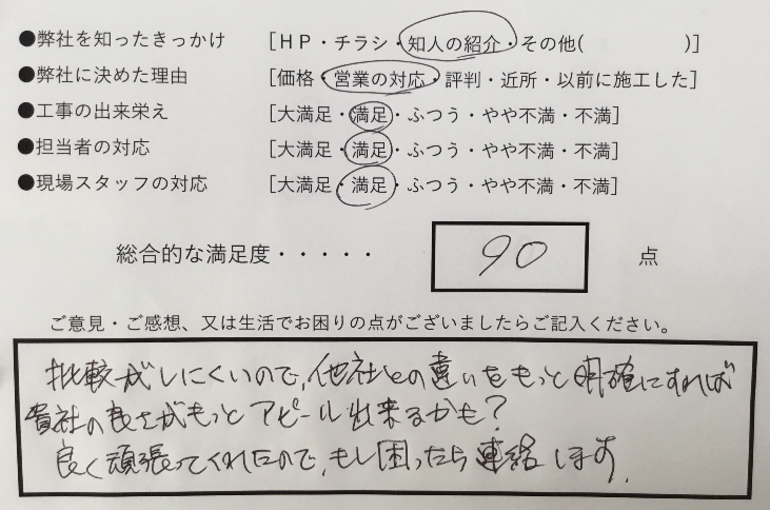 ●弊社を知ったきっかけ [HP・チラシ・知人の紹介・その他( )]
●弊社に決めた理由 [価格・営業の対応・評判・近所・以前に施工した]
●工事の出来栄え [大満足・満足・ふつう・やや不満・不満]
●担当者の対応 [大満足・満足・ふつう・やや不満・不満]
●現場スタッフの対応 [大満足・満足・ふつう・やや不満・不満]
総合的な満足度・・・・・ 90 点
ご意見・ご感想、又は生活でお困りの点がございましたらご記入ください。
比較がしにくいので、他社との違いをもっと明確にすれば
貴社の良さがもっとアピール出来るかも?
良く頑張ってくれたので、もし困ったら連絡します。